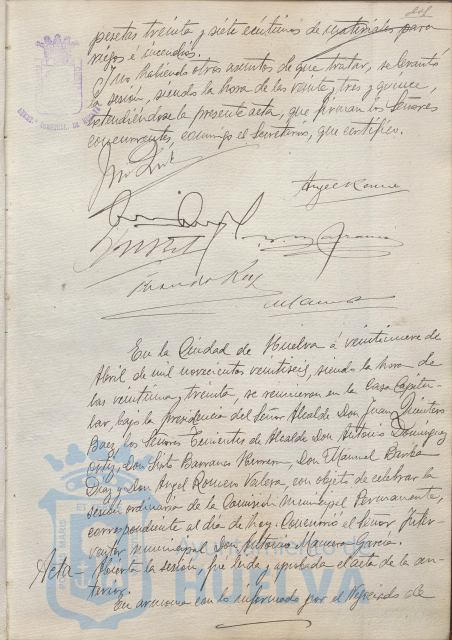 pesetas treinta y siete céntimos de materiales para
riegos é incendios.
Y no habiendo otros asuntos de que tratar, se levantó
la sesión, siendo la hora de las veinte, tres y quince,
extendiéndose la presente acta, que firman los Señores
concurrentes, conmigo el Secretario, que certifico.
Angel Romeu
En la Ciudad de Huelva á veintinueve de
Abril de mil novecientos veintiseis, siendo la hora de
las veintiuna, treinta, se reunieron en la Casa Capitu-
lar, bajo la presidencia del Señor Alcalde Don Juan Quintero
Baez, los Señores Tenientes de Alcalde Don Antonio Domínguez
Ortiz, Don Sixto Barranco Herrera, Don Manuel Barba
Díaz y Don Angel Romeu Valera, con objeto de celebrar la
sesión ordinaria de la Comisión Municipal Permanente,
correspondiente al día de hoy. Concurrio el Señor Inter-
ventor municipal Don Antonio Manuera García.
Acta Abierta la sesión, fué leída y aprobada el acta de la an-
terior.
En armonía con lo informado por el Negociado de
Ayuntamiento de
HUELVA